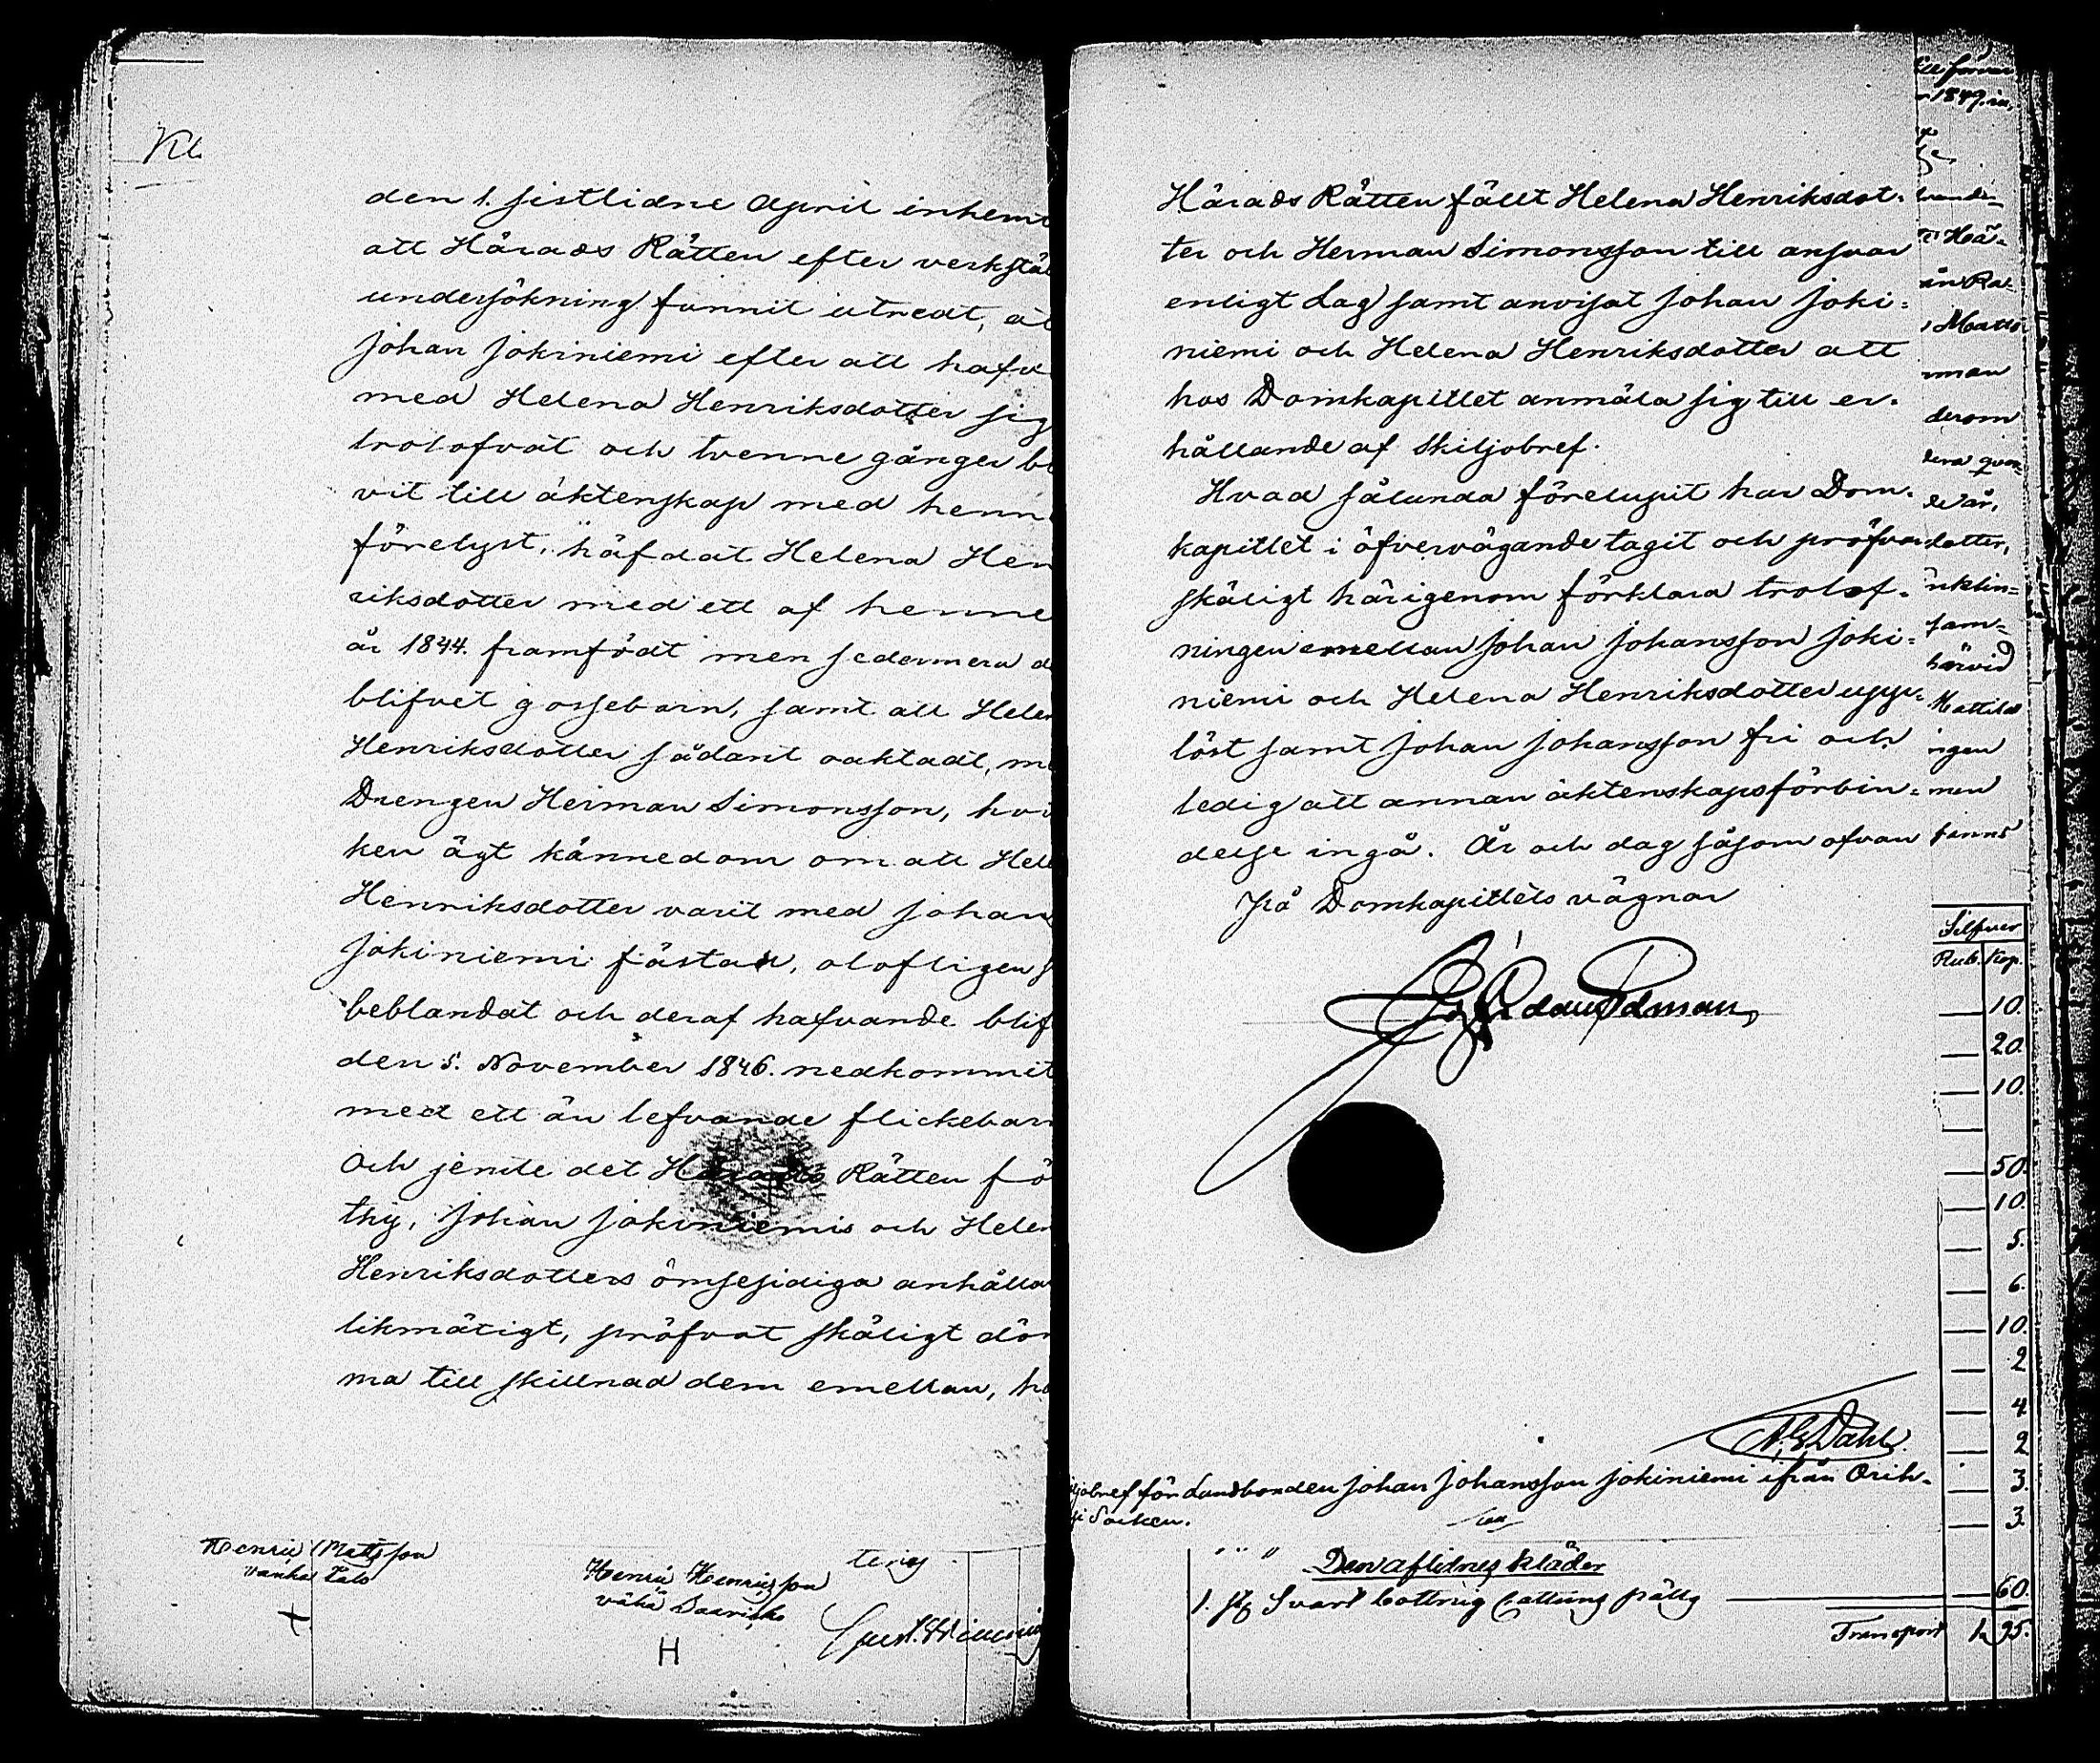 den 1. sistlidne April inhemt
att Härads Rätten efter verkstäl
undersökning funnit utredt, at
Johan Jokiniemi efter att hafv
med Helena Henriksdotter sig
trolofvat och tvenne gånger bl
vit till äktenskap med henn
förelyst, häfdat Helena Hen
riksdotter med ett af henne
år 1844. framfödt men sedermera d
blifvet gossebarn, samt att Helen
Henriksdotter sådant oaktadt, me
Drengen Herman Simonsson, hvi
ken ägt kännedom om att Hele
Henriksdotter varit med Johan
Jokiniemi fästad, olofligen s
beblandat och deraf hafvande blif
den 5. November 1846. nedkommit
med ett än lefvande flickebarn
Och jemte det Härads Rätten fö
thy, Johan Jokiniemis och Helen
Henriksdotters ömsesidiga anhållan
likmätigt, pröfvat skäligt döm
ma till skillnad dem emellan, ha
Henric Mattsson
Vanha Talo
Henric Henricsson
vähä Saarisko
H
Härads Rätten fällt Helena Henriksdot-
ter och Herman Simonsson till ansvar
enligt Lag samt anvisat Johan Joki-
niemi och Helena Henriksdotter att
hos Domkapitlet anmäla sig till er-
hållande af Skiljobref.
Hvad sålunda förelupit har Dom-
kapitlet i öfvervägande tagit och pröfvar
skäligt härigenom förklara trolof-
ningen emellan Johan Johansson Joki-
niemi och Helena Henriksdotter upp-
löst samt Johan Johansson fri och
ledig att annan äktenskapsförbin-
delse ingå. År och dag såsom ofvan
På Domkapitlets vägnar
A. G. Dahl.
jobref för Landbonden Johan Johansson Jokiniemi ifrån Orih-
Socken.
Den aflidnes kläder
1. st. Svart
60.
Transport 1. 95.
1849.
Hä-
Matts
man
derom
de år,
dotter,
nklin-
sam-
härvid
Mattila
ingen
men
finns
Silfver
Rub. Kop.
10.
20.
10.
50.
10.
5.
6.
10.
2
4
2
3.
3